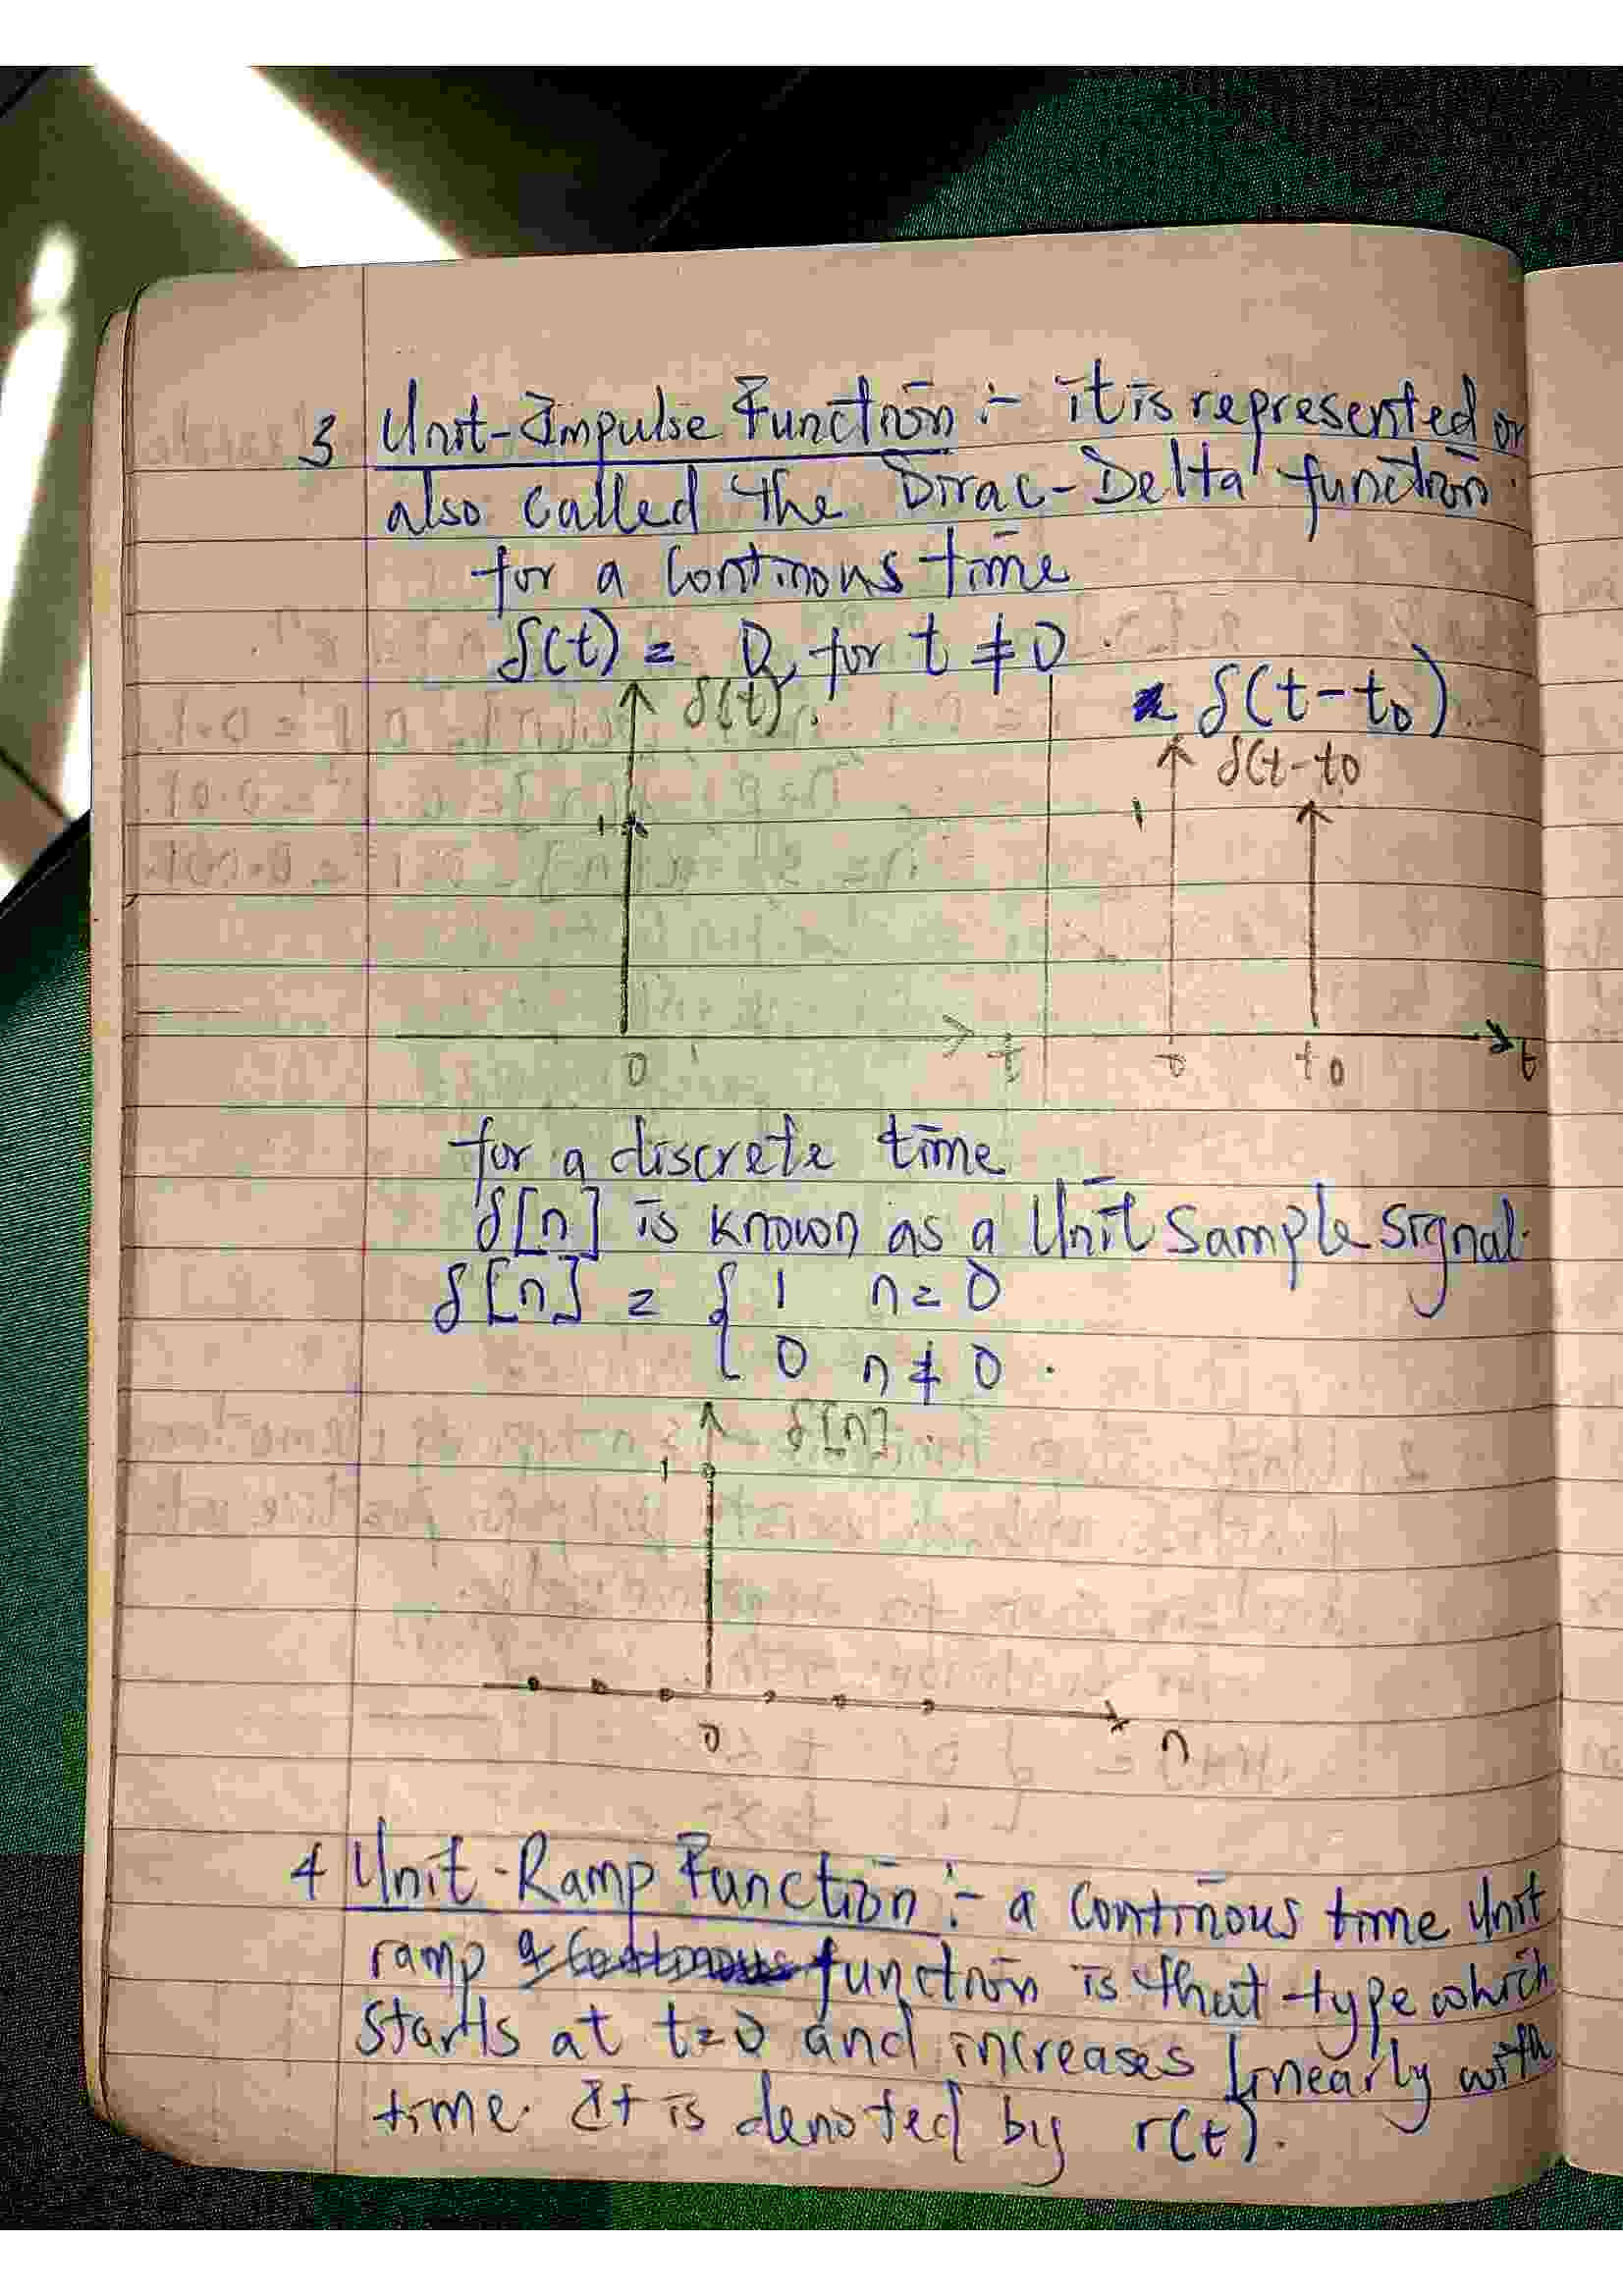 3 Unit-Impulse Function :- it is represented or
also called the Dirac-Delta function.
for a continous time
δ(t) = 0, for t ≠ 0.
δ(t).
δ(t-t0).
δ(t-t0
1
1
0
t
0
t0
t
for a discrete time
δ[n] is known as a Unit sample signal.
δ[n] = { 1 n = 0
0 n ≠ 0.
δ[n].
1
0
n
4 Unit-Ramp Function :- a continous time Unit
ramp function is that type which
starts at t=0 and increases linearly with
time. It is denoted by r(t).